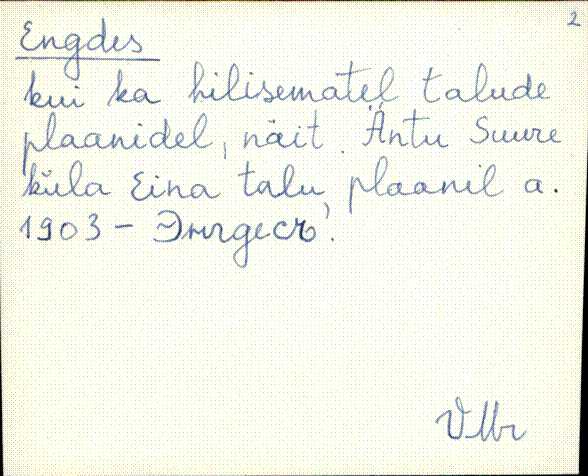 2
Engdes
kui ka hilisematel talude
plaanidel, näit. Äntu Suure
küla Eina talu plaanil a.
1903 – Энгдесъ.
VMr